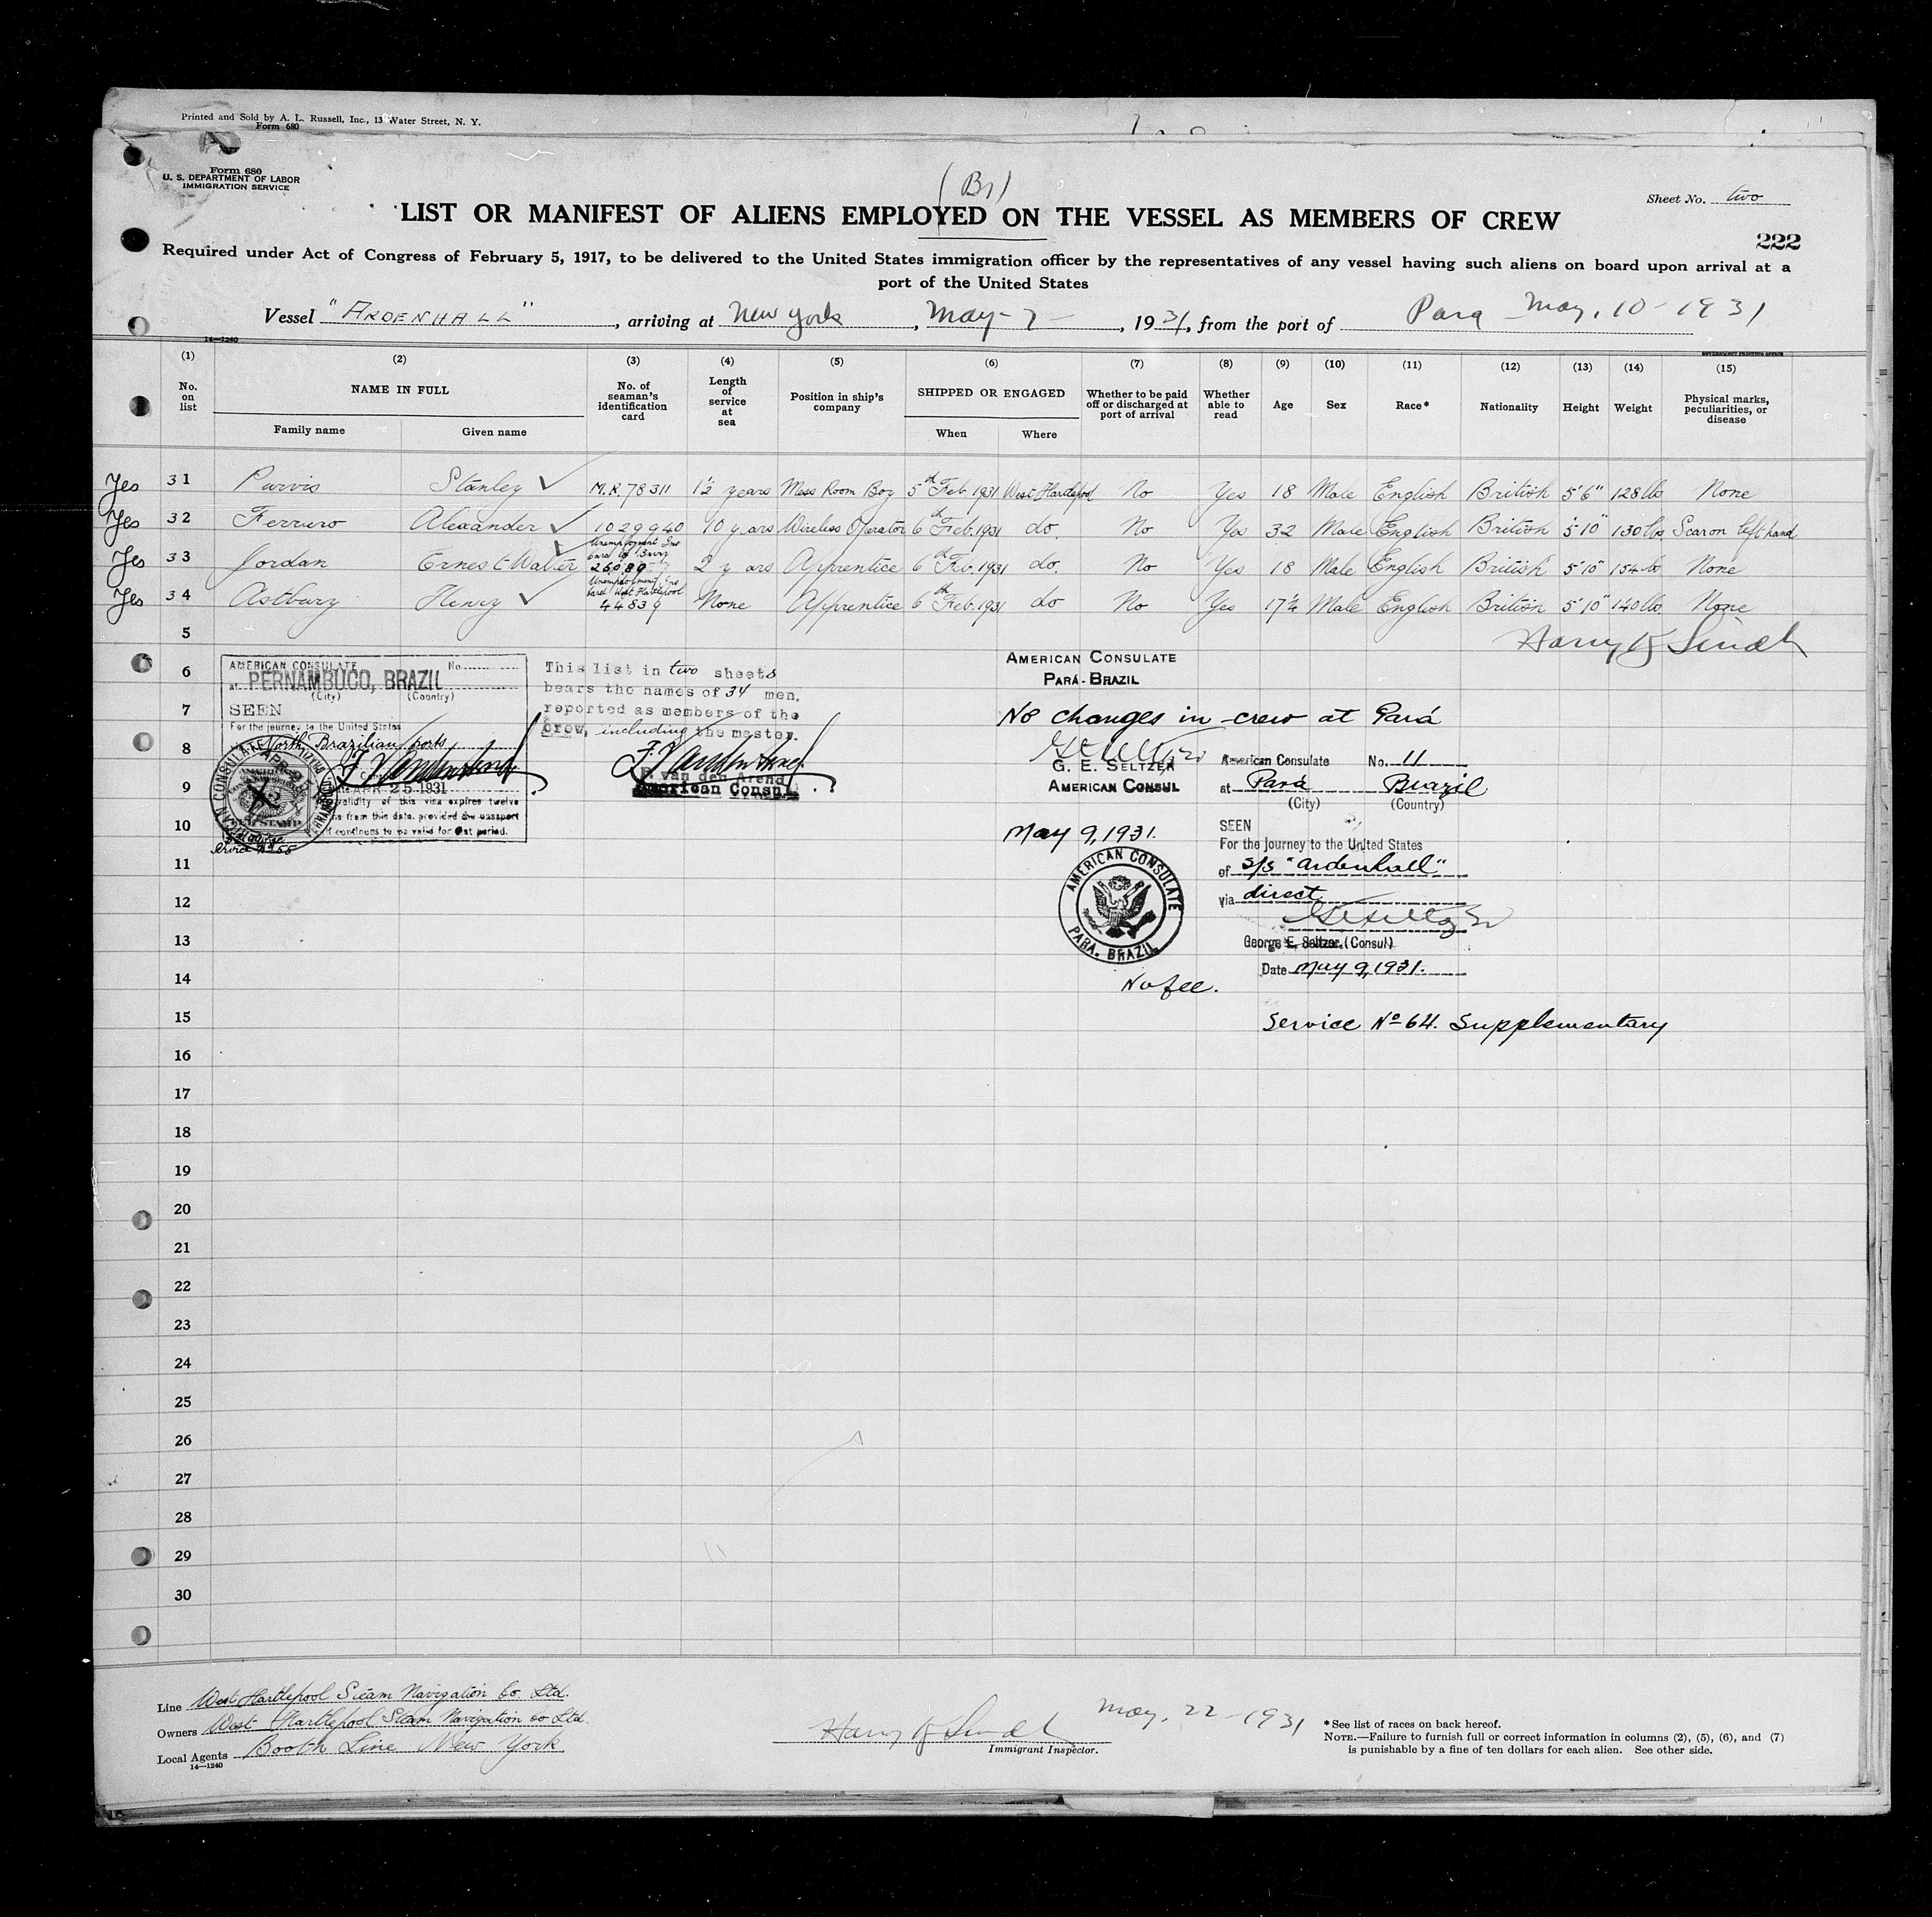 Printed and Sold by A. L. Russell, Inc., 13 Water Street, N. Y.
Form 680
Form 680
U. S. DEPARTMENT OF LABOR
IMMIGRATION SERVICE
(Br)
Sheet No. two
LIST OR MANIFEST OF ALIENS EMPLOYED ON THE VESSEL AS MEMBERS OF CREW
222
Required under Act of Congress of February 5, 1917, to be delivered to the United States immigration officer by the representatives of any vessel having such aliens on board upon arrival at a
port of the United States
Vessel "ARDENHALL", arriving at New York, May-, 1931, from the port of Para May, 10-1931
14—1240
(1) (2) (3) (4) (5) (6) (7) (8) (9) (10) (11) (12) (13) (14) (15)
No. on list NAME IN FULL No. of seaman's identification card Length of service at sea Position in ship's company SHIPPED OR ENGAGED Whether to be paid off or discharged at port of arrival Whether able to read Age Sex Race* Nationality Height Weight Physical marks, peculiarities, or disease
Family name Given name When Where
Yes 31 Purvis Stanley ✓ M.R. 78311 1½ years Mess Room Boy 5th Feb 1931 West Hartlepool No Yes 18 Male English British 5'6" 128 lbs None
Yes 32 Ferruro Alexander ✓ 1029940 10 years Wireless Operator 6th Feb. 1931 do. No Yes 32 Male English British 5'10" 130 lbs Scar on left hand
Yes 33 Jordan Ernest Walter ✓ Unemployment Ins card 2 years Apprentice 6th Feb. 1931 do. No Yes 18 Male English British 5'10" 154 lbs None
Yes 34 Astbury Henry ✓ Unemployment Ins card West Hartlepool 44839 None Apprentice 6th Feb. 1931 do No Yes 17¼ Male English British 5'10" 140 lbs. None
5
6
7
8
9
10
11
12
13
14
15
16
17
18
19
20
21
22
23
24
25
26
27
28
29
30
AMERICAN CONSULATE No.
at PERNAMBUCO, BRAZIL
(City) (Country)
SEEN
For the journey to the United States
North Brazilian ports
APR 25 1931
validity of this visa expires twelve
from this date, provided the passport
continues to be valid for that period.
Service No 55
This list in two sheets
bears the names of 34 men,
reported as members of the
crew, including the master.
F. van den Arend
American Consul
AMERICAN CONSULATE
PARÁ-BRAZIL
No changes in crew at Pará
G. E. SELTZER
AMERICAN CONSUL
May 9, 1931.
AMERICAN CONSULATE
PARA. BRAZIL
No fee.
American Consulate No. 11
at Pará Brazil
(City) (Country)
SEEN
For the journey to the United States
of S/S "Ardenhall"
via direct
George E. Seltzer. (Consul)
Date May 9, 1931.
Service No 64. Supplementary
Line West Hartlepool Steam Navigation Co. Ltd.
Owners West Hartlepool Steam Navigation Co Ltd.
Local Agents Booth Line New York
14—1240
May, 22-1931
Immigrant Inspector.
*See list of races on back hereof.
NOTE.—Failure to furnish full or correct information in columns (2), (5), (6), and (7)
is punishable by a fine of ten dollars for each alien. See other side.